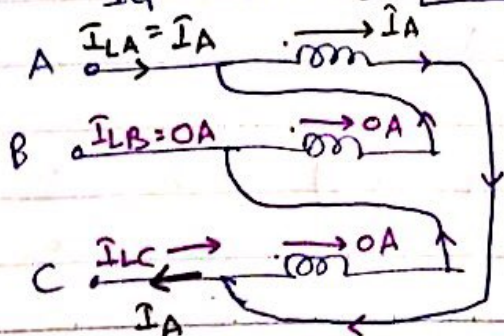 A I_LA = I_A I_A
B I_LB = 0A 0A
C I_LC 0A
I_A